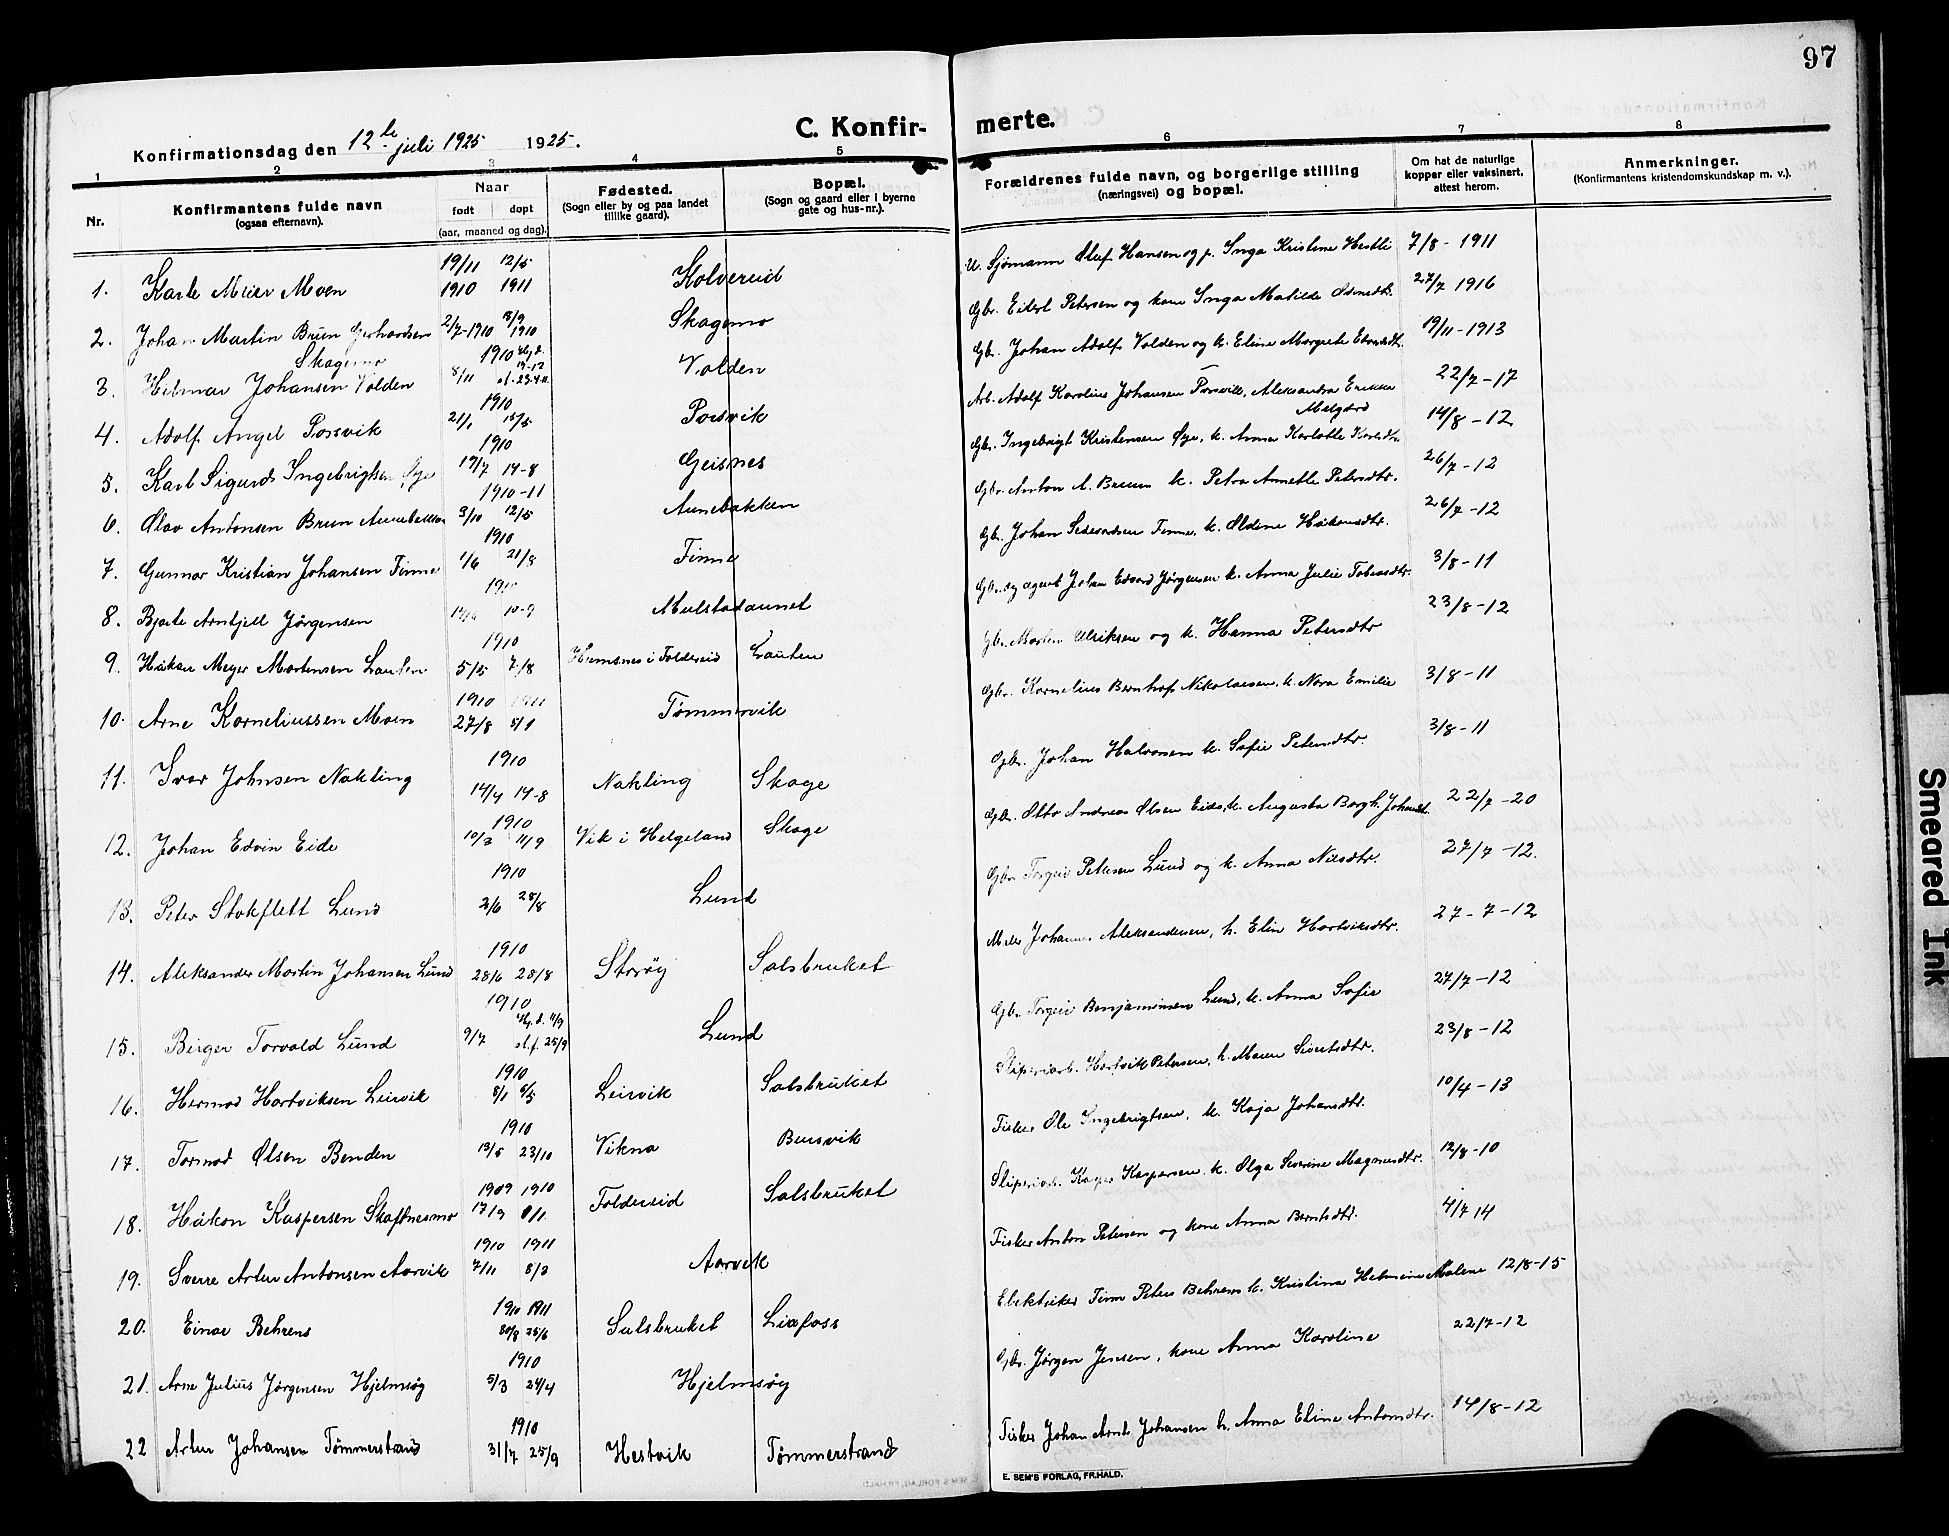 97
C. Konfirmerte.
Konfirmationsdag den 12te juli 1925 1925.
1 2 3 4 5 6 7 8
Nr.
Konfirmantens fulde navn
(ogsaa efternavn).
Naar
født døpt
(aar, maaned og dag).
Fødested.
(Sogn eller by og paa landet
tillike gaard).
Bopæl.
(Sogn og gaard eller i byerne
gate og hus-nr.).
Forældrenes fulde navn, og borgerlige stilling
(næringsvei) og bopæl.
Om hat de naturlige
kopper eller vaksinert,
attest herom.
Anmerkninger.
(Konfirmantens kristendomskundskap m. v.).
1. Kaare Meier Moen 19/11 1910 12/5 1911 Kolvereid U. Sjømann Oluf Hansen og p. Inga Kristine Hestli 7/8-1911
2. Johan Martin Brun Gerhardsen Skagemo 2/7-1910 18/9 1910 Skagemo Gbr. Eilert Petersen og kone Inga Matilde 27/7 1916
3. Hilmar Johansen Volden 1910 8/11 Volden Gbr. Johan Adolf Volden og k. Eline Margrete 19/11-1913
4. Adolf Angel Porsvik 1910 21/1 15/5 Porsvik Arb. Adolf Karolius Johansen Porsvik, Aleksandra Erikka 22/7-17
5. Karl Sigurd Ingebrigtsen Øye 1910 17/7 14-8 Geisnes Gbr. Ingebrigt Kristensen Øye, k. Anna Karlotte 14/8-12
6. Olav Antonsen Brun Aunebakken 1910-11 3/10 12/5 Aunebakken Gbr. Anton A. Bruun k. Petra Annette Petersdtr. 26/7-12
7. Gunnar Kristian Johansen Finne 1910 1/6 21/8 Finne Gbr. Johan Finne, k. Oldine Håkonsdtr. 26/7-12
8. Bjarte Arntjell Jørgensen 1910 10-9 Mulstadaunet Gbr. og agent Johan Edvard Jørgensen k. Anna Julie Tobiasdtr. 3/8-11
9. Håkon Meyer Mortensen Lauten 1910 5/5 7/8 Hemsnes i Foldereid Lauten Gbr. Morten Ulriksen og k. Hanna Petersdtr 23/8-12
10. Arne Korneliussen Moen 1910 1911 27/8 8/1 Tømmervik Gbr. Kornelius Bernhof Nikolaisen, k. Nora Emilie 3/8-11
11. Ivar Johnsen Nakling 1910 14/4 14-8 Nakling Skage Gbr. Johan Halvorsen k. Sofie Petersdtr. 3/8-11
12. Johan Edvin Eide 1910 10/3 11/9 Vik i Helgeland Skage Gbr. Otto Andreas Olsen Eide, k. Augusta Borgh. Johansdtr. 22/7-20
13. Peter Stokflett Lund 1910 2/6 28/8 Lund Gbr. Torgeir Petersen Lund og k. Anna Nilsdtr. 27/7-12.
14. Aleksander Martin Johansen Lund 1910 28/6 28/8 Storøy Salsbruket Aleksandersen, h. Elin Hartviksdtr. 27-7-12
15. Birger Torvald Lund 1910 9/7 25/9 Lund Gbr. Torgeir Benjaminsen Lund, k. Anna Sofie 27/7-12
16. Hermod Hartviksen Leirvik 1910 8/1 8/5 Leirvik Salsbruket Sliperiarb. Hartvik Petersen, h. Maren Sivertsdtr. 23/8-12
17. Tormod Olsen Benden 1910 13/5 23/10 Vikna Bersvik Fisker Ole Ingebrigtsen, k. Kaja Johansdtr. 10/4-13
18. Håkon Kaspersen Skaftnesmo 1909 1910 17/9 Foldereid Salsbruket Sliperiarb. Kasper Kaspersen, k. Olga Severine Magnusdtr. 12/8-10
19. Sverre Artur Antonsen Aarvik 1910 1911 7/11 8/3 Aarvik Fisker Anton Petersen og kone Anna Berntsdtr. 4/7 14
20. Einar Behrens 1910 1911 30/8 25/6 Salsbruket Liafoss Elektriker Finn Peter Behrens k. Kristina Helmine Malene 12/8-15
21. Arne Julius Jørgensen Hjelmsøy 1910 5/3 24/4 Hjelmsøy Gbr. Jørgen Jensen, kone Anna Karoline 22/7-12
22 Artur Johansen Tømmerstrand 1910 31/7 25/9 Hestvik Tømmerstrand Fisker Johan Arnt Johansen h. Anna Eline Antonsdtr. 14/8-12
E. SEM'S FORLAG, FR.HALD.
Smeared Ink